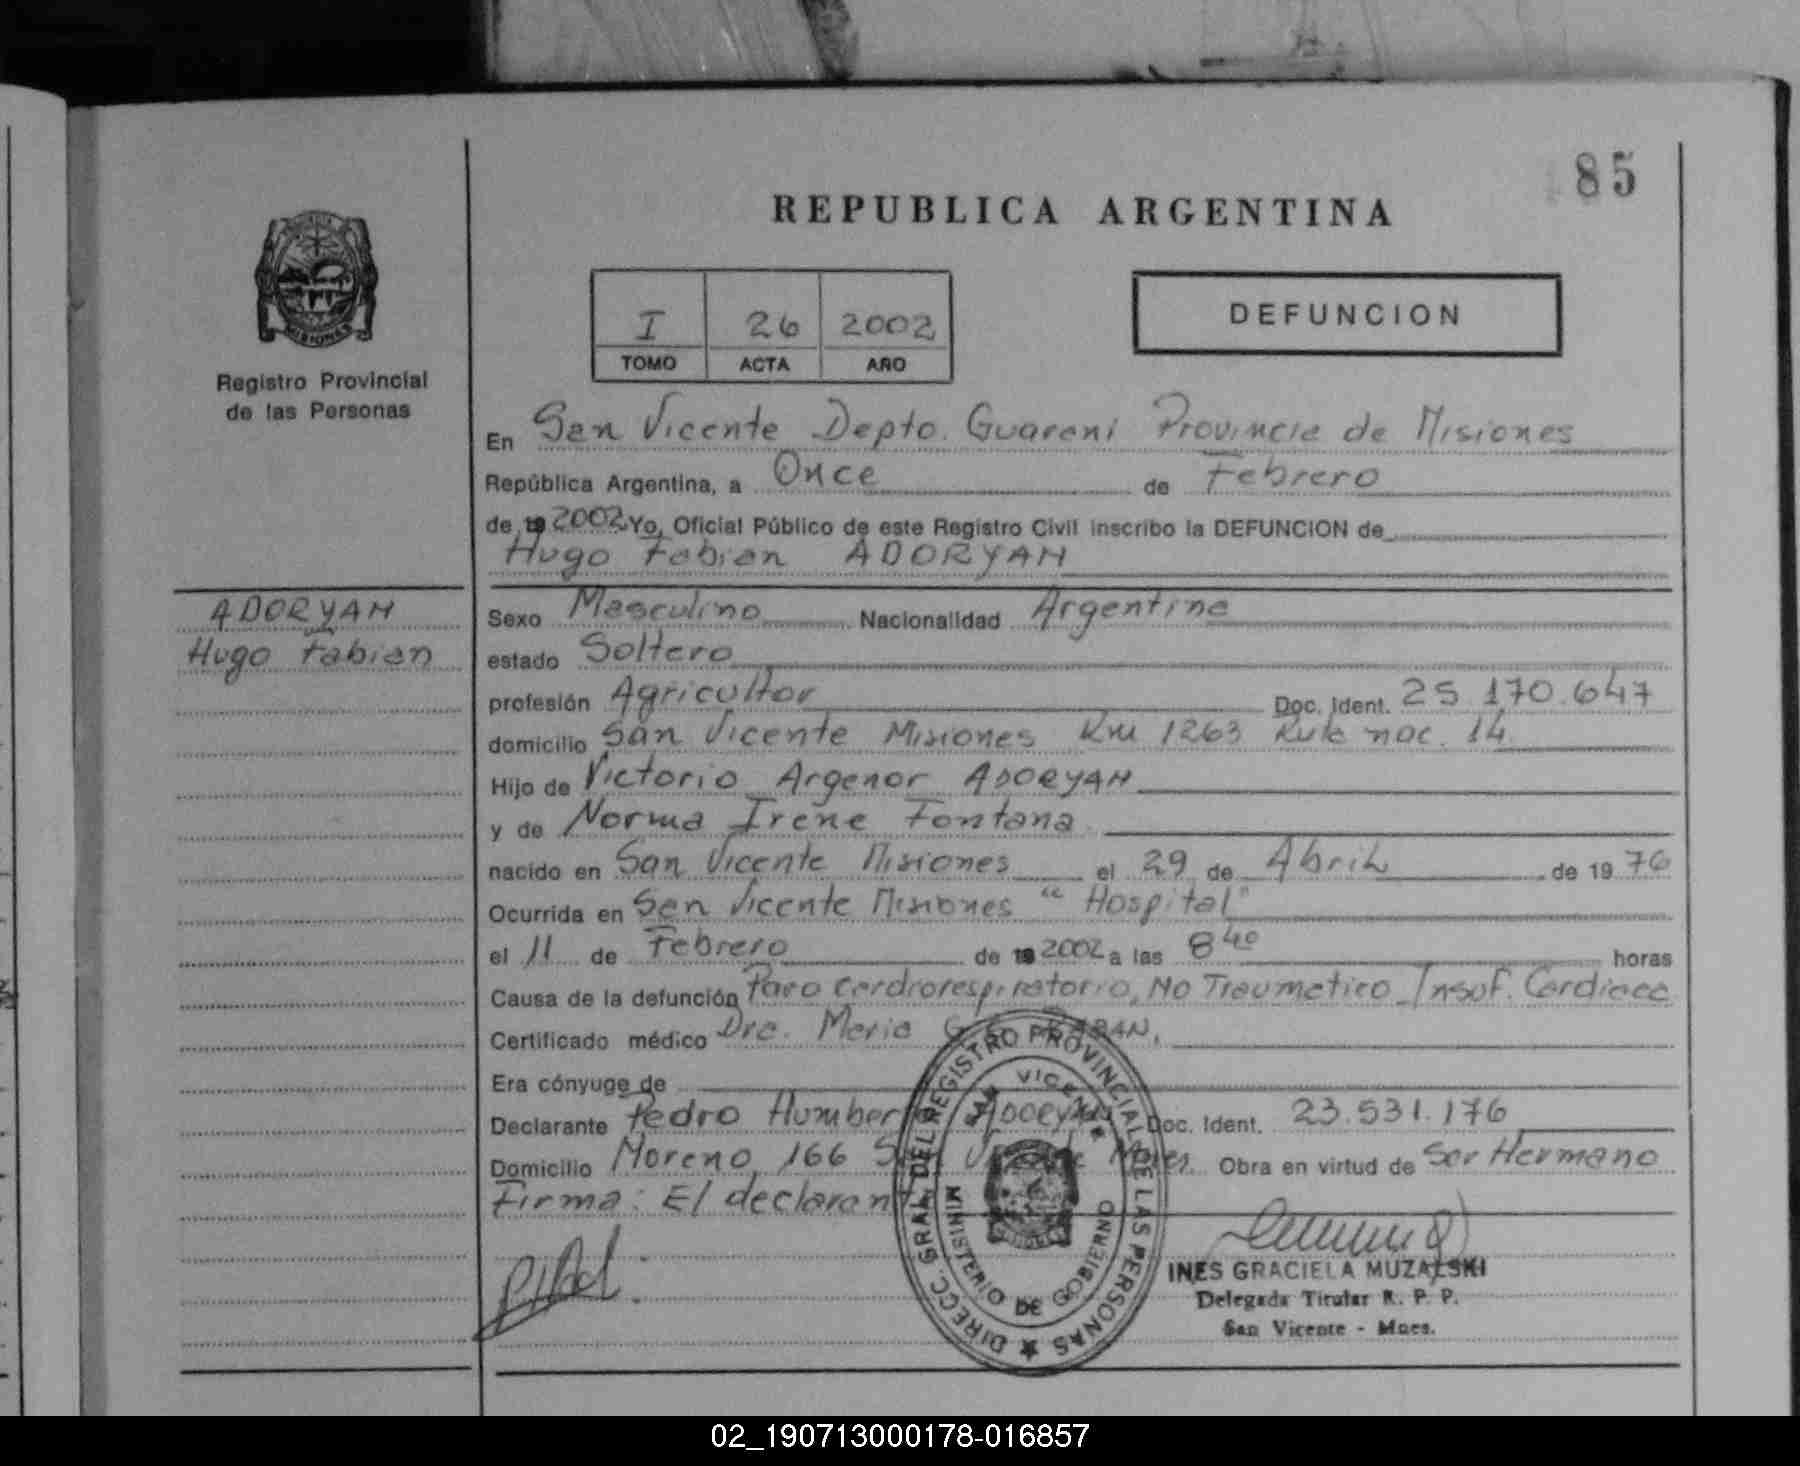 85
REPUBLICA ARGENTINA
MISIONES
Registro Provincial
de las Personas
I 26 2002
TOMO ACTA AÑO
DEFUNCION
En San Vicente Depto. Guarani Provincia de Misiones
República Argentina, a Once de Febrero
de 19 2002 Yo, Oficial Público de este Registro Civil inscribo la DEFUNCION de
Hugo Fabian ADORYAN
ADORYAN
Hugo Fabian
Sexo Masculino Nacionalidad Argentina
estado Soltero
profesión Agricultor Doc. Ident. 25.170.647
domicilio San Vicente Misiones Km 1263 Ruta nac. 14
Hijo de Victorio Argenor ADORYAN
y de Norma Irene Fontana
nacido en San Vicente Misiones el 29 de Abril de 1976
Ocurrida en San Vicente Misiones "Hospital"
el 11 de Febrero de 19 2002 a las 8 40 horas
Causa de la defunción Paro Cardiorespiratorio, No Traumatico Insuf. Cardiaca
Certificado médico Dra. Maria G.
Era cónyuge de
Declarante Pedro Humberto Adoryan Doc. Ident. 23.531.176
Domicilio Moreno 166 San Vicente Mnes. Obra en virtud de Ser Hermano
Firma: El declarante
DIRECC. GRAL. DEL REGISTRO PROVINCIAL DE LAS PERSONAS
SAN VICENTE
MINISTERIO DE GOBIERNO
INES GRACIELA MUZALSKI
Delegada Titular R. P. P.
San Vicente - Mnes.
02_190713000178-016857